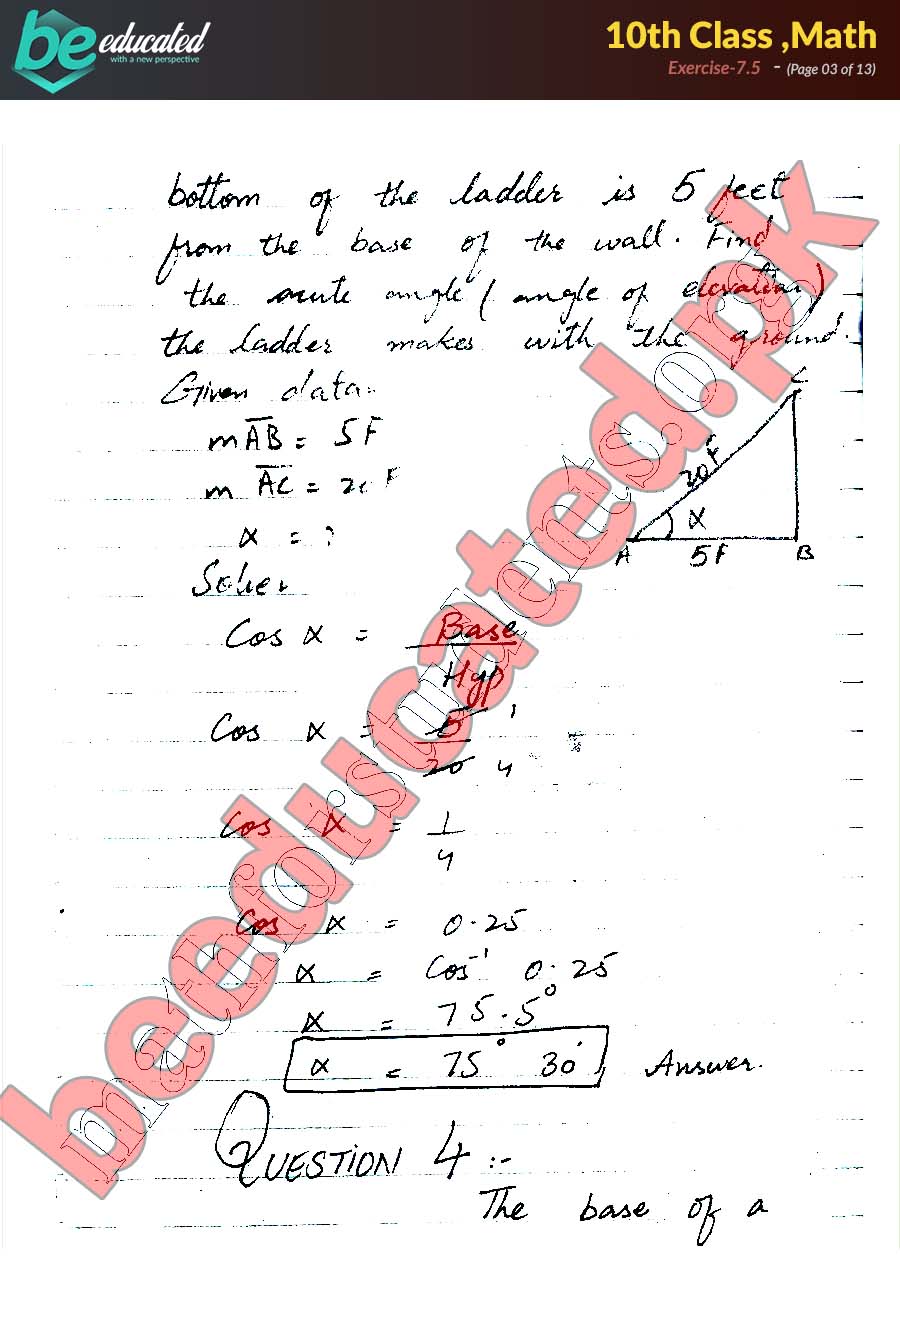 be educated
with a new perspective
10th Class ,Math
Exercise-7.5 - (Page 03 of 13)
bottom of the ladder is 5 feet
from the base of the wall. Find
the acute angle (angle of elevation)
the ladder makes with the ground.
Given data:
mAB = 5F
mAC = 20F
α = ?
C
20F
α
A 5F B
Cos α = Base
Hyp
Cos α = 5 1
20 4
Cos α = 1
4
Cos α = 0.25
α = Cos⁻¹ 0.25
α = 75.5°
α = 75° 30' Answer.
QUESTION 4 :-
The base of a
beeducated.pk